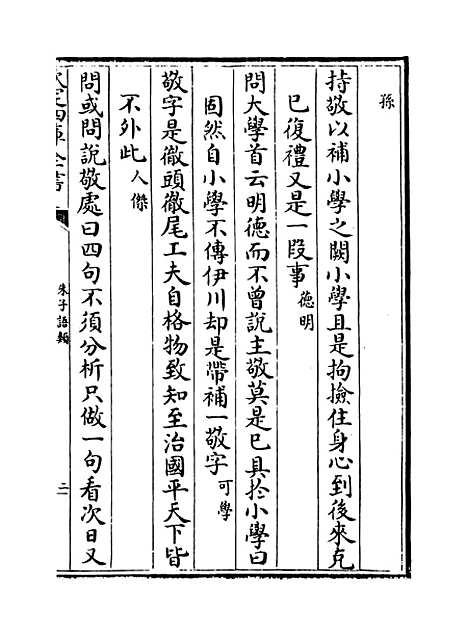 孫
持敬以補小學之闕小學且是拘撿住身心到後來克
已復禮又是一段事德明
問大學首云明德而不曾說主敬莫是已具於小學曰
固然自小學不傳伊川却是帶補一敬字可學
敬字是徹頭徹尾工夫自格物致知至治國平天下皆
不外此人傑
問或問說敬處曰四句不須分析只做一句看次日又
欽定四庫全書
朱子語類
二